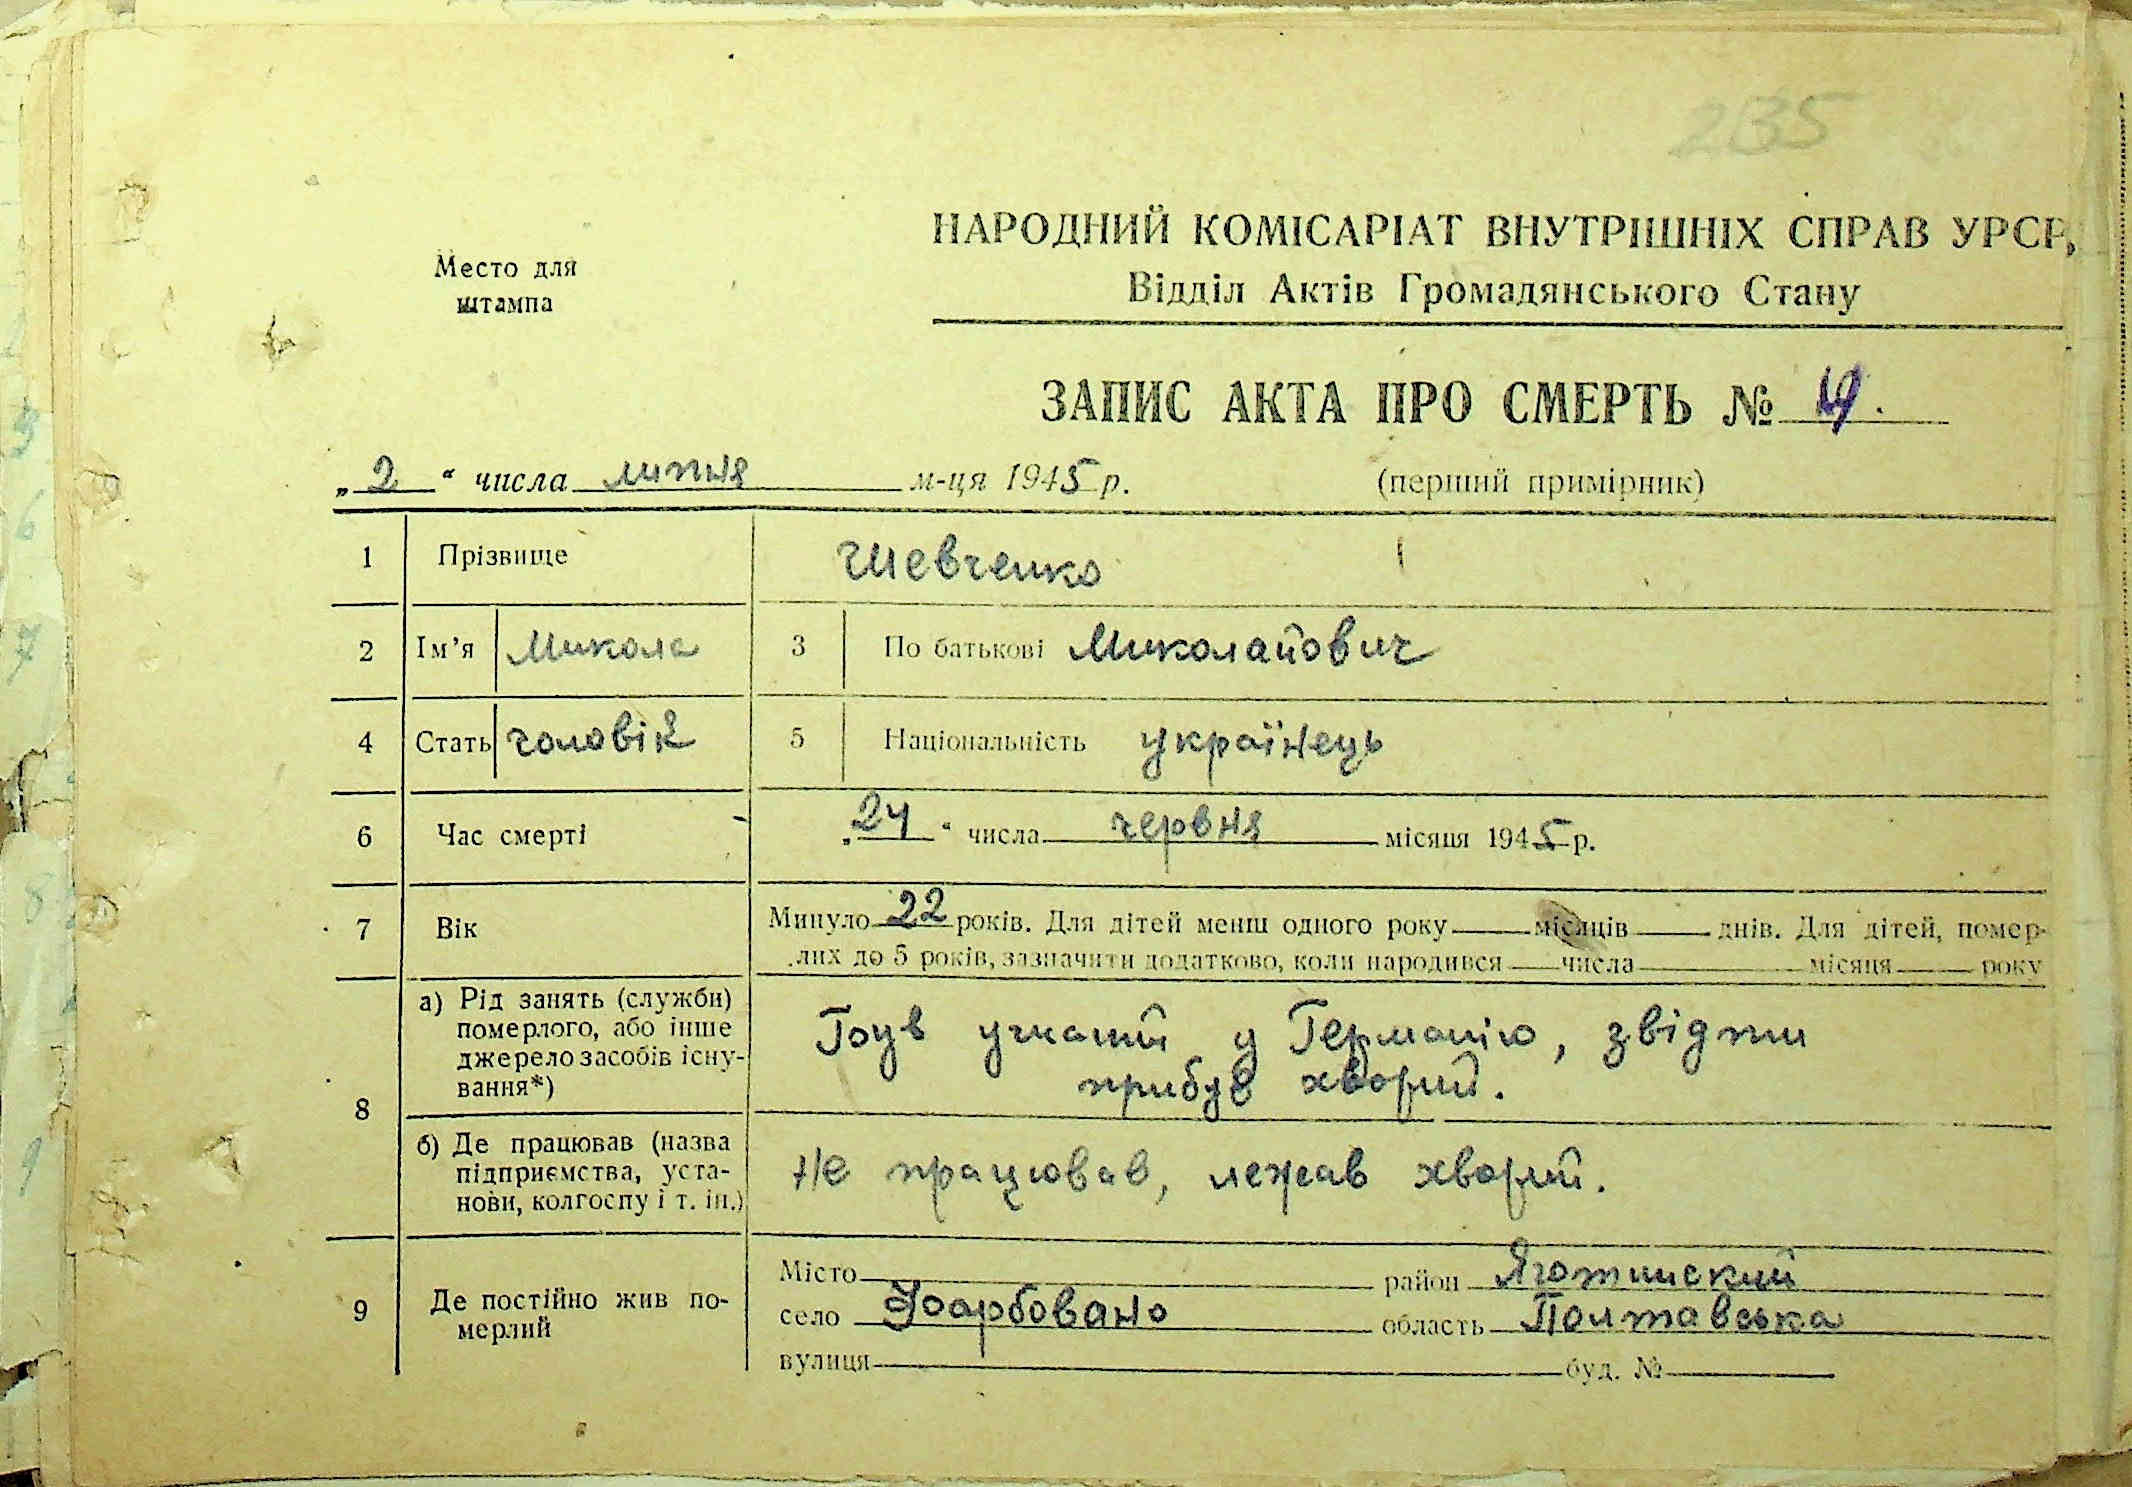 235
Место для
штампа
НАРОДНИЙ КОМІСАРІАТ ВНУТРІШНІХ СПРАВ УРСР,
Відділ Актів Громадянського Стану
ЗАПИС АКТА ПРО СМЕРТЬ № 19.
„ 2 “ числа липня м-ця 1945 р. (перший примірник)
1 Прізвище Шевченко
2 Ім’я Микола 3 По батькові Миколайович
4 Стать чоловік 5 Національність українець
6 Час смерті „ 24 “ числа червня місяця 1945 р.
7 Вік Минуло 22 років. Для дітей менш одного року місяців днів. Для дітей, помер-
лих до 5 років, зазначити додатково, коли народився числа місяця року
8 а) Рід занять (служби)
померлого, або інше
джерело засобів існу-
вання*)
у Германію, звідти
прибув хворий.
б) Де працював (назва
підприємства, уста-
нови, колгоспу і т. ін.)
Не працював, лежав хворий.
9 Де постійно жив по-
мерлий
Місто район Яготинский
село Фарбовано область Полтавська
вулиця буд. №